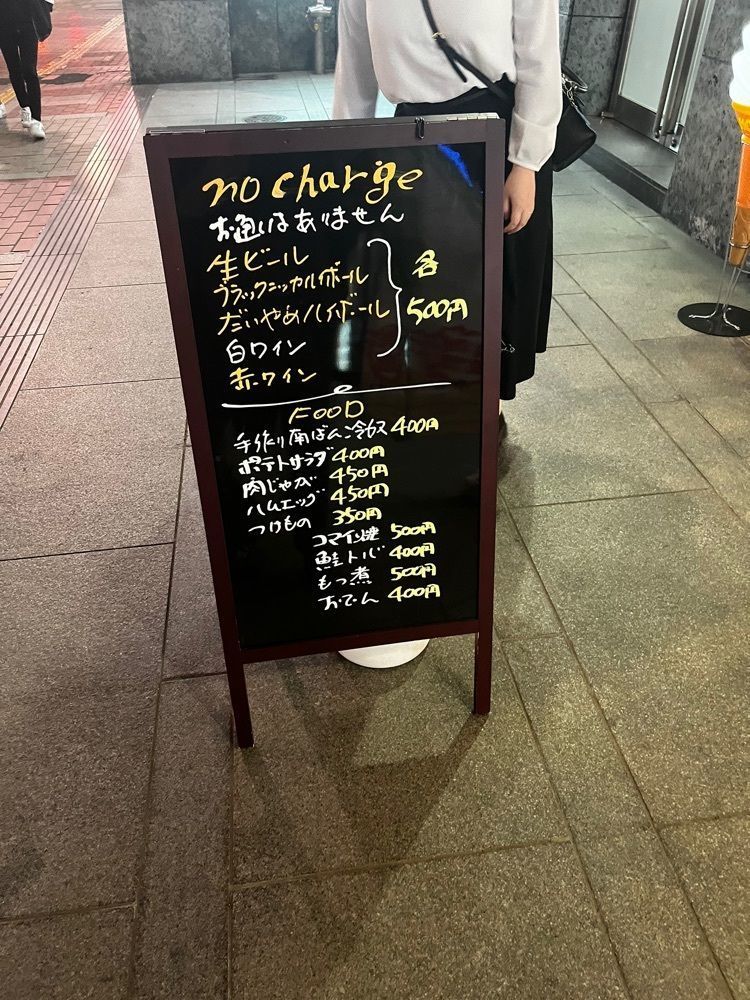 no charge
お通しはありません
生ビール
ブラックニッカハイボール
だいやめハイボール
白ワイン
赤ワイン
各
500円
FOOD
手作り南ばん冷奴 400円
ポテトサラダ 400円
肉じゃが 450円
ハムエッグ 450円
つけもの 350円
コマイ焼 500円
鮭トバ 400円
もつ煮 500円
おでん 400円